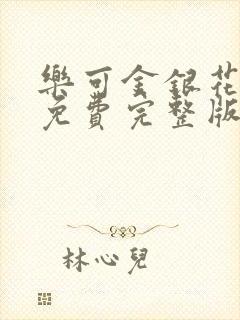 樂可金銀花
免費完整版
林心兒